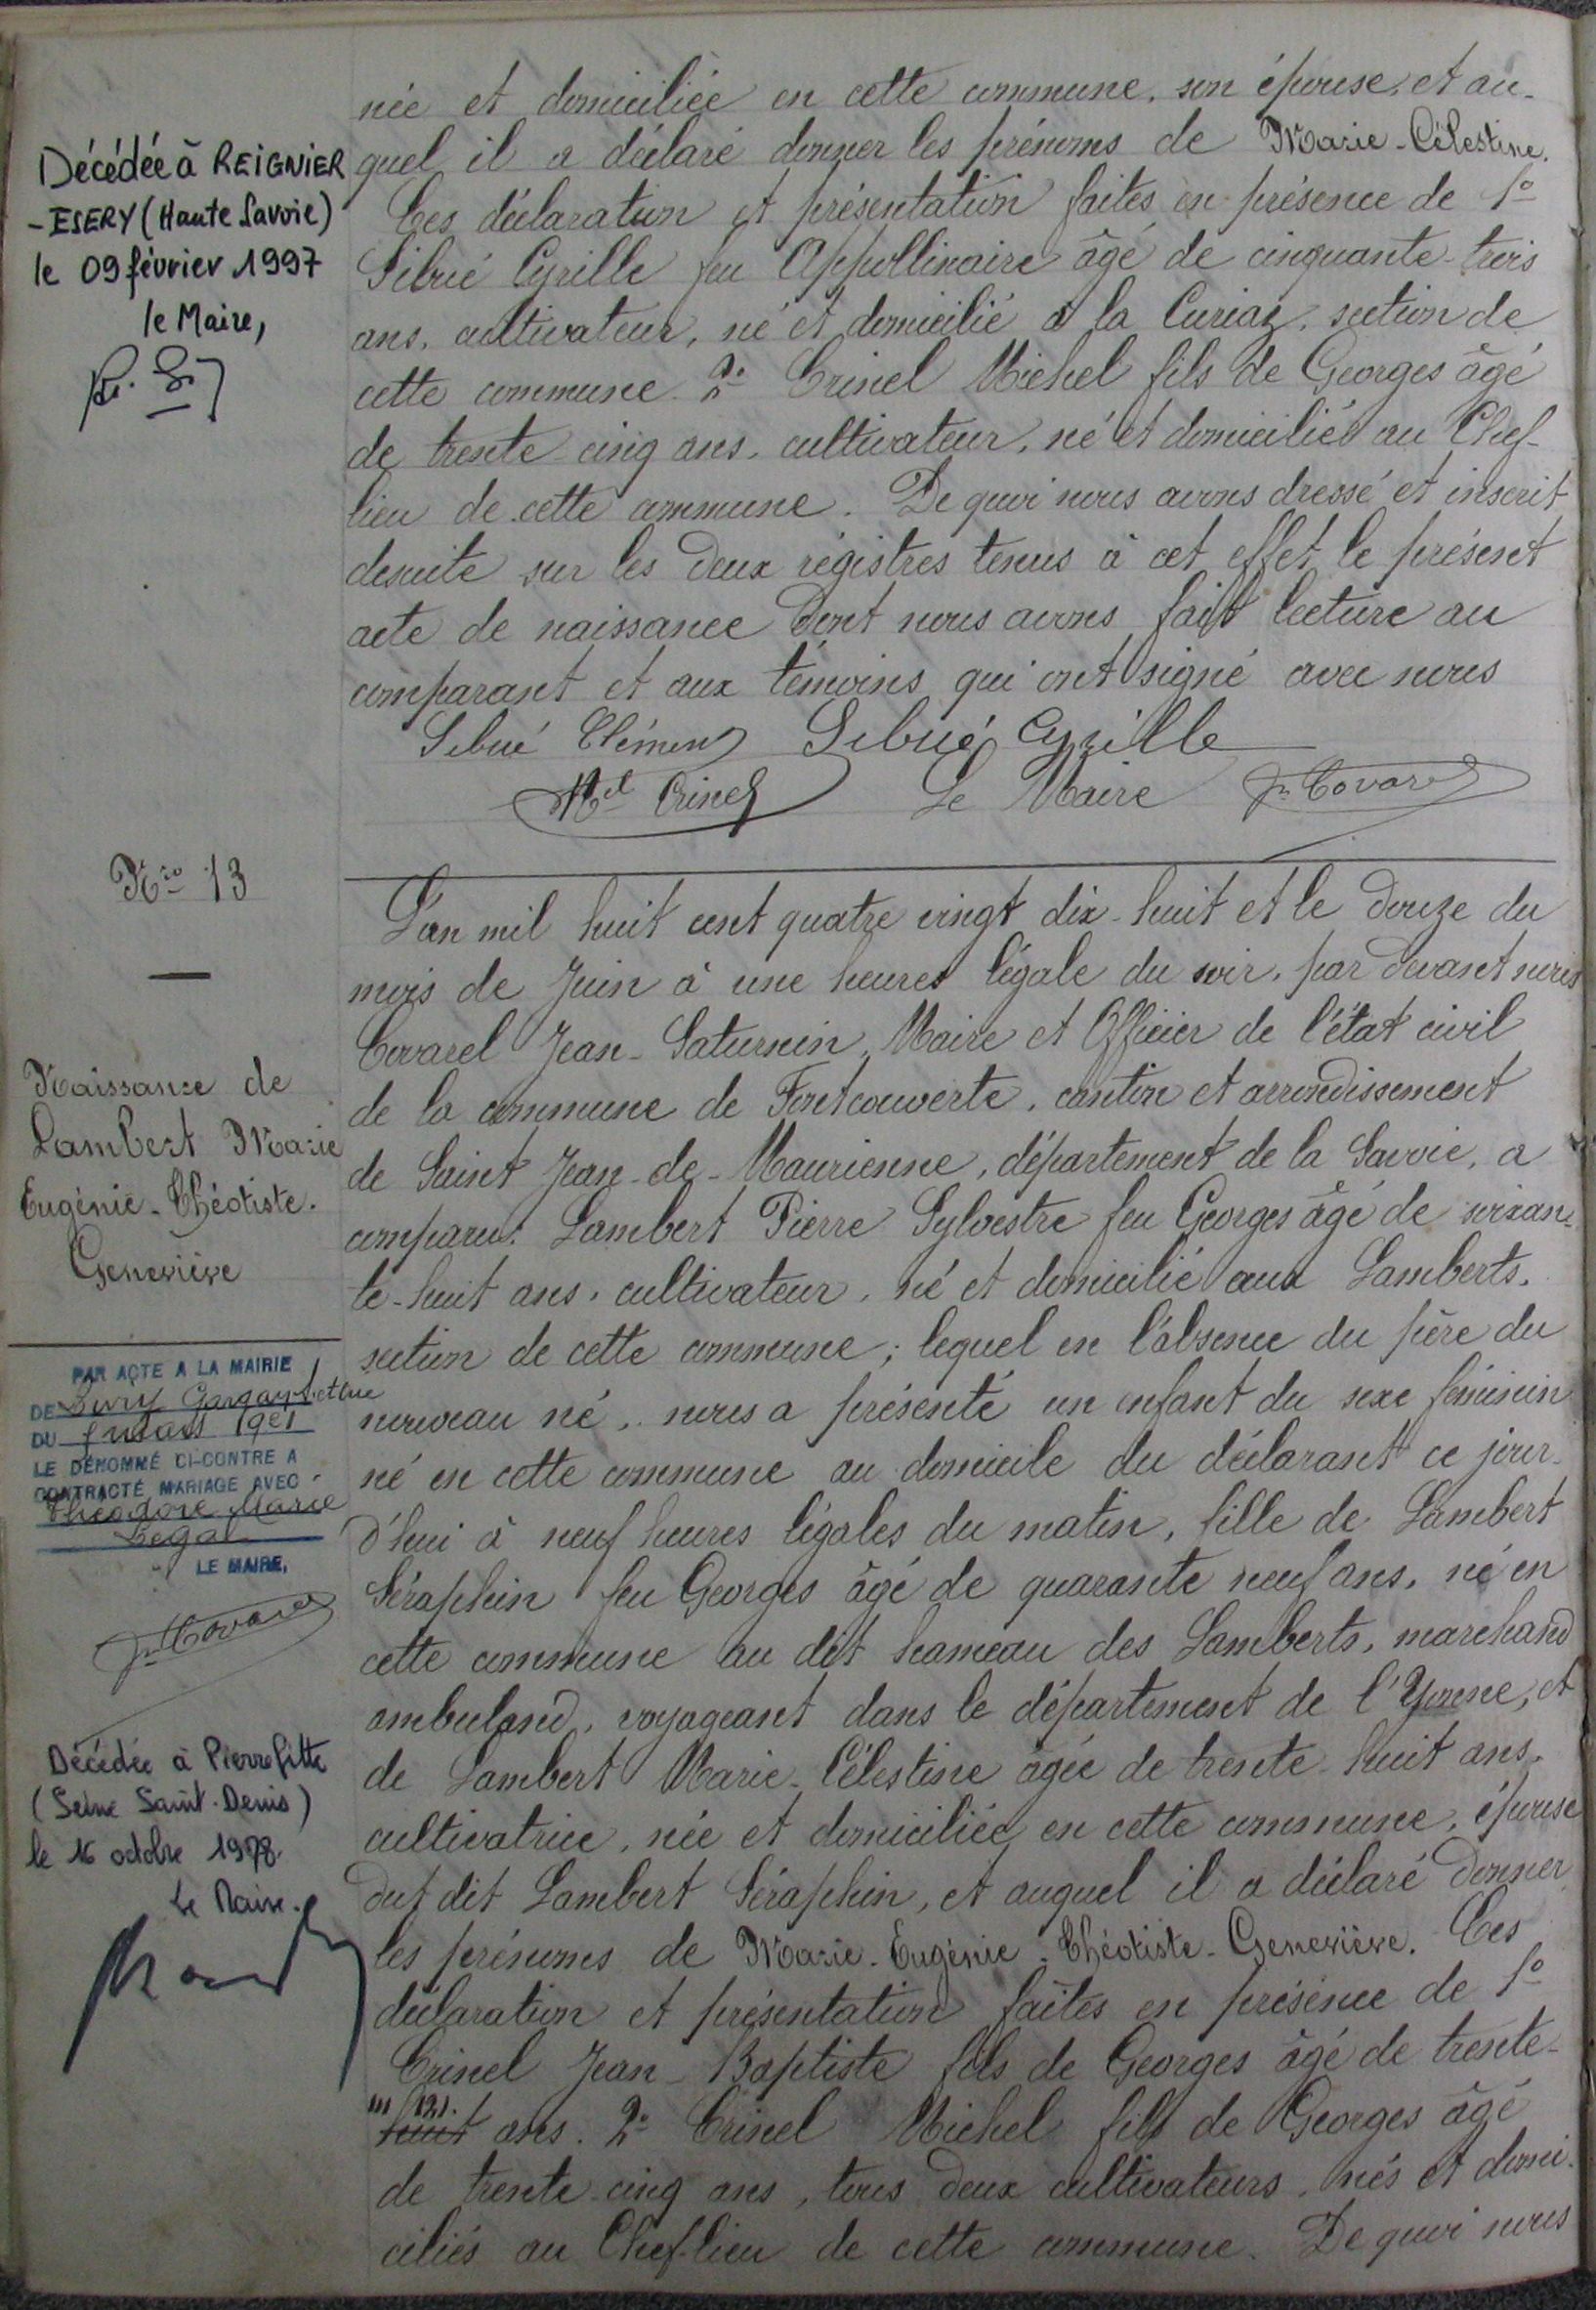 née et domiciliée en cette commune, son épouse, et au-
quel il a déclaré donner les prénoms de Marie-Célestine.
Ces déclaration et présentation faites en présence de 1º
Sibué Cyrille feu Appollinaire âgé de cinquante-trois
ans, cultivateur, né et domicilié à la Curiaz, section de
cette commune. 2º Crinel Michel fils de Georges âgé
de trente-cinq ans, cultivateur, né et domicilié au Chef-
lieu de cette commune. De quoi nous avons dressé et inscrit
desuite sur les deux régistres tenus à cet effet le présent
acte de naissance dont nous avons fait lecture au
comparant et aux témoins qui ont signé avec nous
Sibué Clément Sibué Cyrille
Mel Crinel Le Maire Jn Covarel
Décédée à REIGNIER
-ESERY (Haute Savoie)
le 09 février 1997
le Maire,
Nro 13
Naissance de
Lambert Marie
Eugénie-Théotiste-
Geneviève
PAR ACTE A LA MAIRIE
DE Livry Gargan
DU mars 1921
LE DÉNOMMÉ CI-CONTRE A
CONTRACTÉ MARIAGE AVEC
Théodore Marie
Legal
LE MAIRE,
Jn Covarel
Décédée à Pierrefitte
(Seine Saint-Denis)
le 16 octobre 1978
Le Maire.
L'an mil huit cent quatre vingt dix-huit et le douze du
mois de Juin à une heures légale du soir, par devant nous
Covarel Jean-Saturnin, Maire et Officier de l'état civil
de la commune de Fontcouverte, canton et arrondissement
de Saint Jean-de-Maurienne, département de la Savoie, a
comparu: Lambert Pierre Sylvestre feu Georges âgé de soixan-
te-huit ans, cultivateur, né et domicilié aux Lamberts,
section de cette commune; lequel en l'absence du père du
nouveau né, nous a présenté un enfant du sexe féminin
né en cette commune au domicile du déclarant ce jour-
d'hui à neuf heures légales du matin, fille de Lambert
Séraphin feu Georges âgé de quarante neuf ans, né en
cette commune au dit hameau des Lamberts, marchand
ambuland, voyageant dans le département de l'Yonne, et
de Lambert Marie-Célestine âgée de trente-huit ans,
cultivatrice, née et domiciliée en cette commune, épouse
dut dit Lambert Séraphin, et auquel il a déclaré donner
les prénoms de Marie-Eugénie-Théotiste-Geneviève. Ces
déclaration et présentation faites en présence de 1º
Crinel Jean-Baptiste fils de Georges âgé de trente-
huit ans. 2º Crinel Michel fils de Georges âgé
de trente-cinq ans, tous deux cultivateurs, nés et domi-
ciliés au Chef-lieu de cette commune. De quoi nous